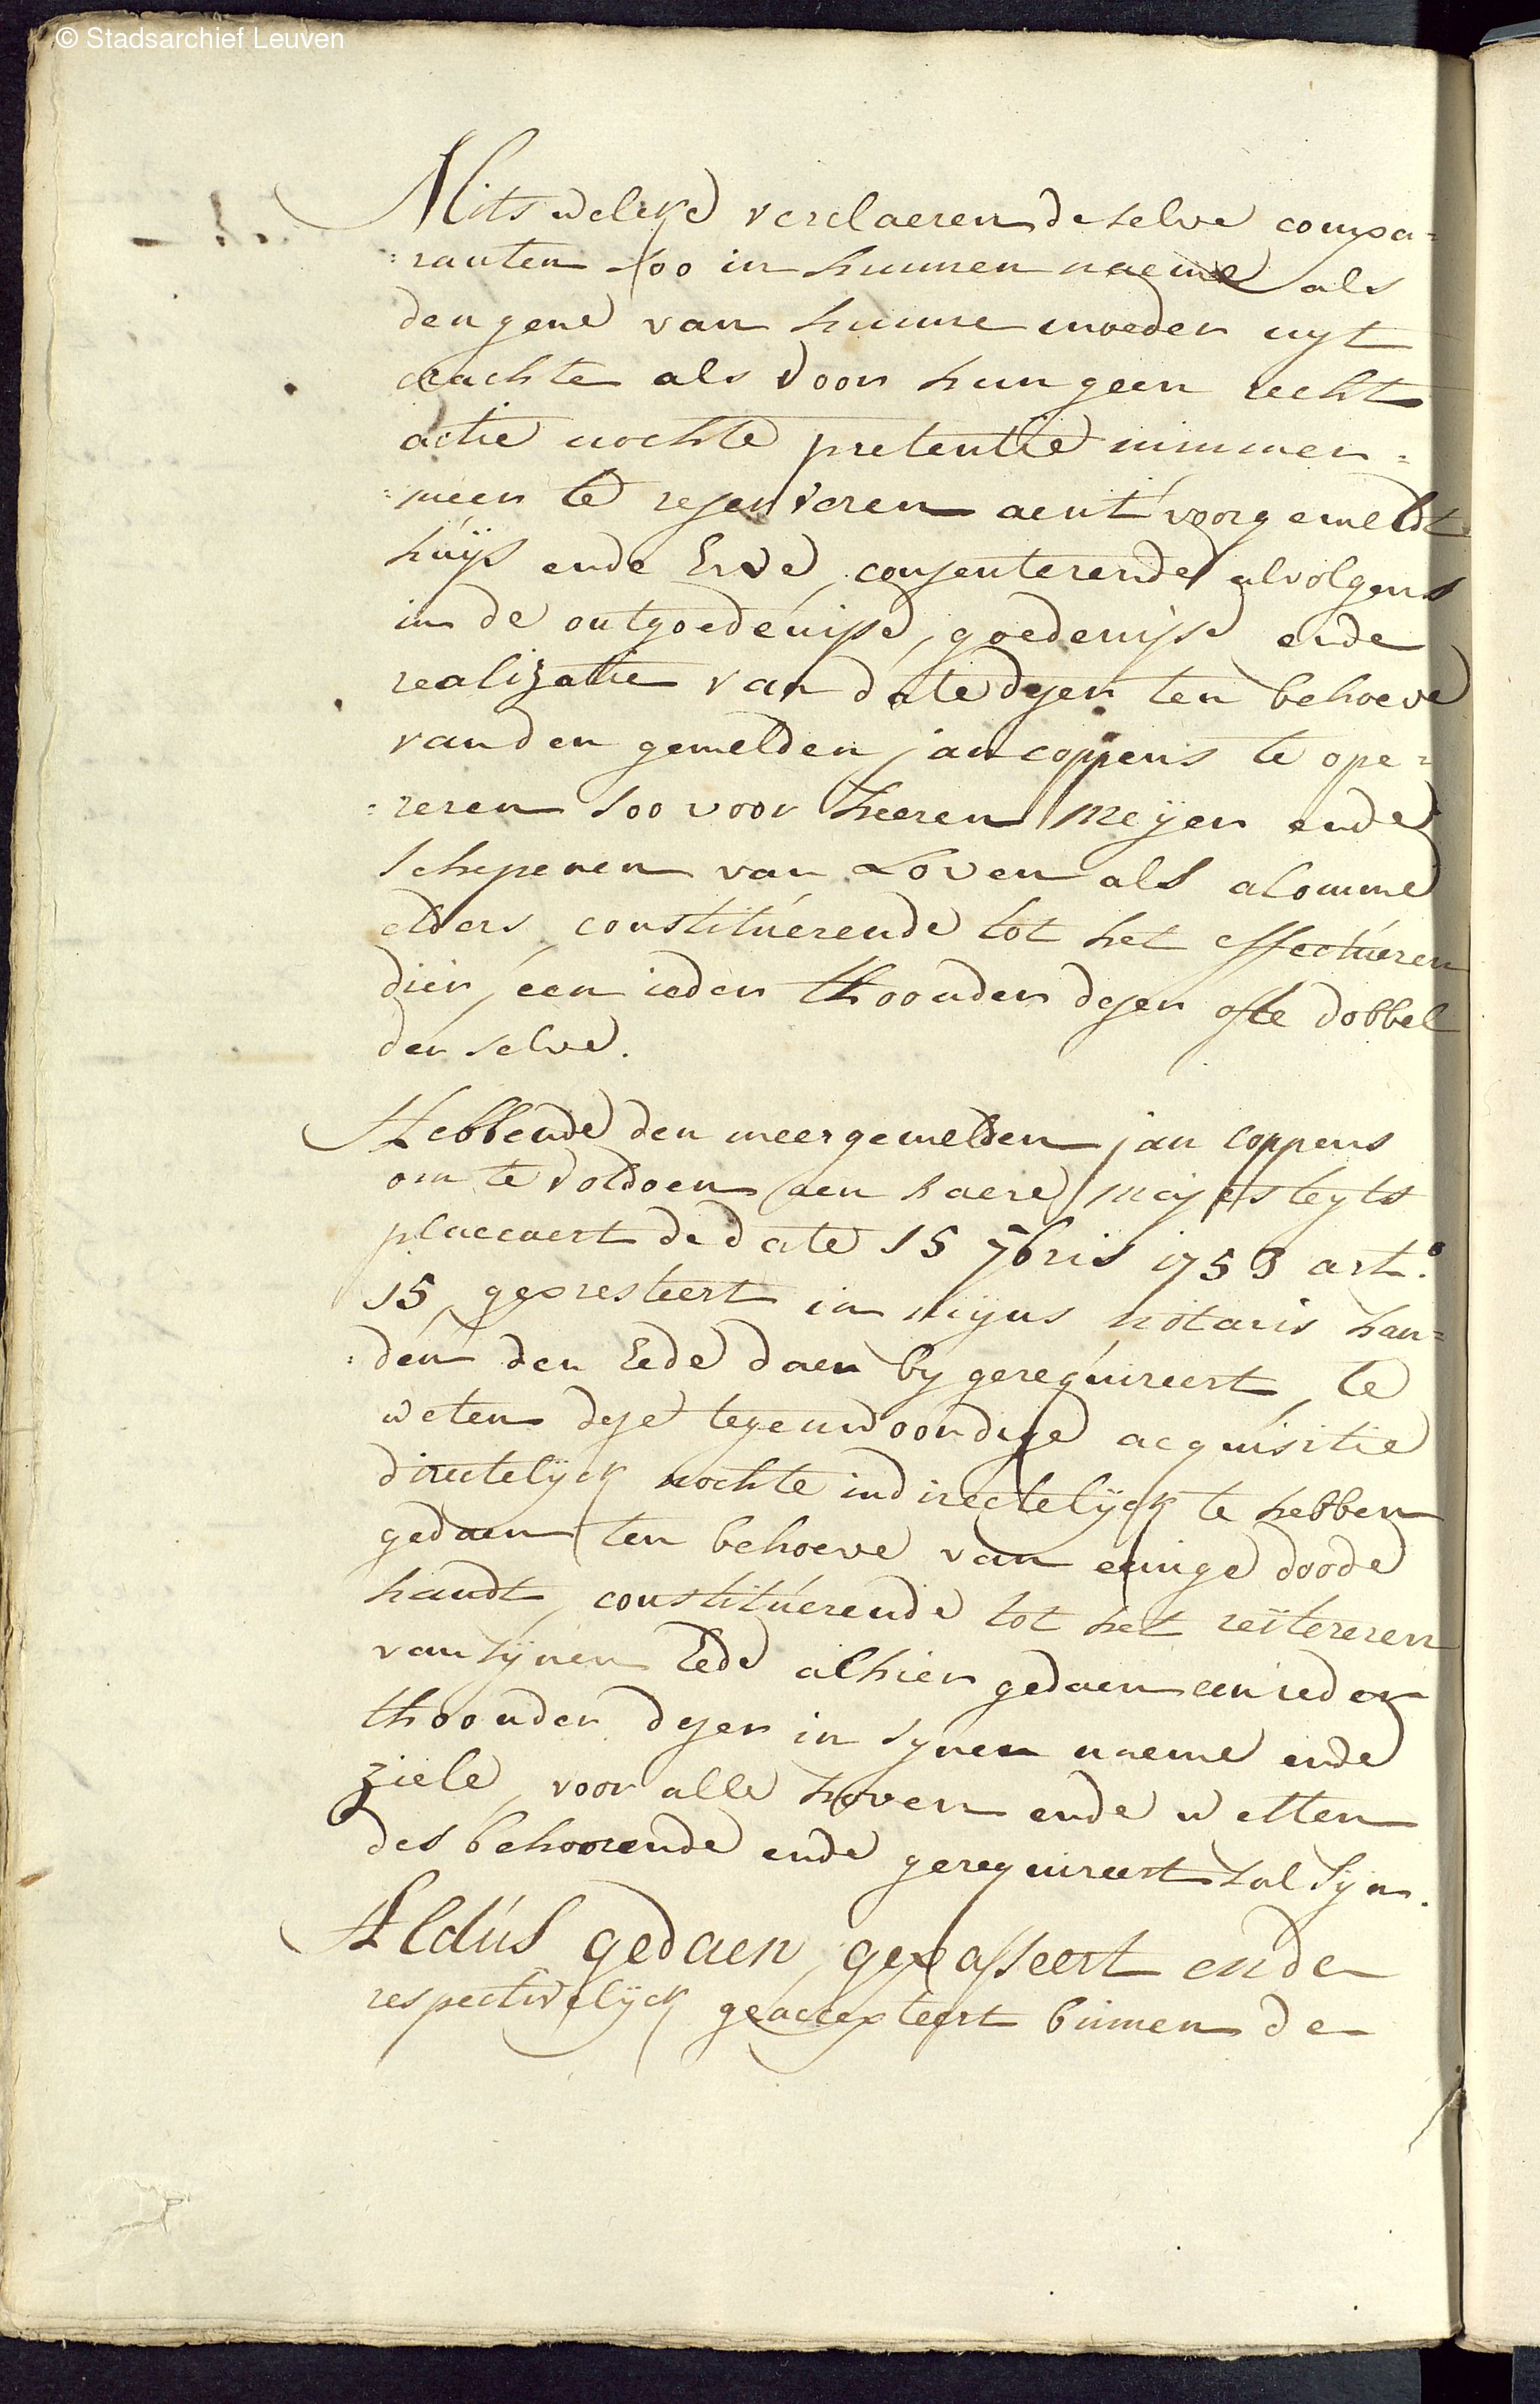 © Stadsarchief Leuven
Mits welcke verclaeren de selve compa=
=ranten soo in hunnen naeme als
den gene van hunne moeder uyt
crachte als voor hun geen recht
actie nochte pretentie nimmer=
=meer te reserveren aent voorgemeldt
huijs ende Erve, consenterende alvolgens
in de ontgoedenisse, goedenisse ende
realizatie van date deser ten behoeve
van den gemelden jan coppens te ope=
=reren soo voor heeren Meijer ende
schepenen van Loven als alomme
elders, constituerende tot het effectueren
dier, een ieder thoonder deser ofte dobbel
der selve.
Hebbende den meergemelden jan coppens
om te voldoen aen haere majesteyts
placcaert de date 15 7bris 1753 art.o
15, gepresteert in mijns notaris han=
=den den Eede daer by gerequireert, te
weten dese tegenwoordige acquisitie
directelijck nochte indirectelijck te hebben
gedaen ten behoeve van einige doode
handt, constituerende tot het reïtereren
van sijnen Eede alhier gedaen een ieder
thoonder deser in synen naeme ende
ziele, voor alle hoven ende wetten
des behoorende ende gerequireert sal sijn.
Aldus gedaen, gepasseert ende
respectivelijck geaccepteert binnen de